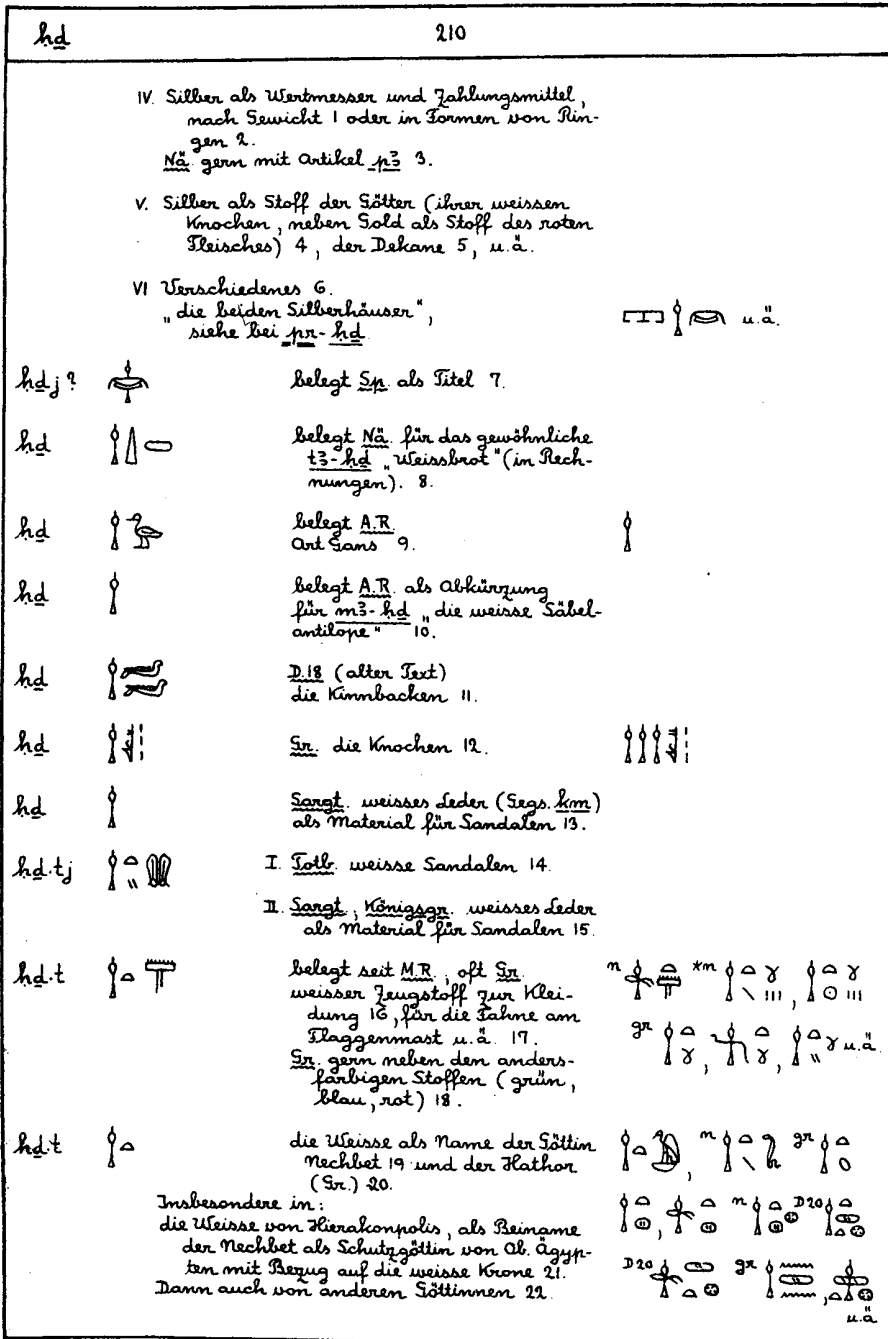 ḥḏ 210
IV. Silber als Wertmesser und Zahlungsmittel,
nach Gewicht 1 oder in Formen von Rin-
gen 2.
Nä. gern mit Artikel pꜣ 3.
V. Silber als Stoff der Götter (ihrer weissen
Knochen, neben Gold als Stoff des roten
Fleisches) 4, der Dekane 5, u.ä.
VI Verschiedenes 6.
„die beiden Silberhäuser",
siehe bei pr-ḥḏ
u.ä.
ḥḏj? belegt Sp. als Titel 7.
ḥḏ belegt Nä. für das gewöhnliche
tꜣ-ḥḏ „Weissbrot" (in Rech-
nungen). 8.
ḥḏ belegt A.R.
Art Gans 9.
ḥḏ belegt A.R. als Abkürzung
für mꜣ-ḥḏ „die weisse Säbel-
antilope" 10.
ḥḏ D.18 (alter Text)
die Kinnbacken 11.
ḥḏ Gr. die Knochen 12.
ḥḏ Sargt. weisses Leder (Gegs. km)
als Material für Sandalen 13.
ḥḏ.tj I. Totb. weisse Sandalen 14.
II. Sargt., Königsgr. weisses Leder
als Material für Sandalen 15.
ḥḏ.t belegt seit M.R., oft Gr. n *n
weisser Zeugstoff zur Klei-
dung 16, für die Fahne am
Flaggenmast u.ä. 17. gr u.ä.
Gr. gern neben den anders-
farbigen Stoffen (grün,
blau, rot) 18.
ḥḏ.t die Weisse als Name der Göttin n gr
Nechbet 19 und der Hathor
(Gr.) 20.
Insbesondere in: n D20
die Weisse von Hierakonpolis, als Beiname
der Nechbet als Schutzgöttin von Ob. Ägyp-
ten mit Bezug auf die weisse Krone 21. D20 gr
Dann auch von anderen Göttinnen 22.
u.ä